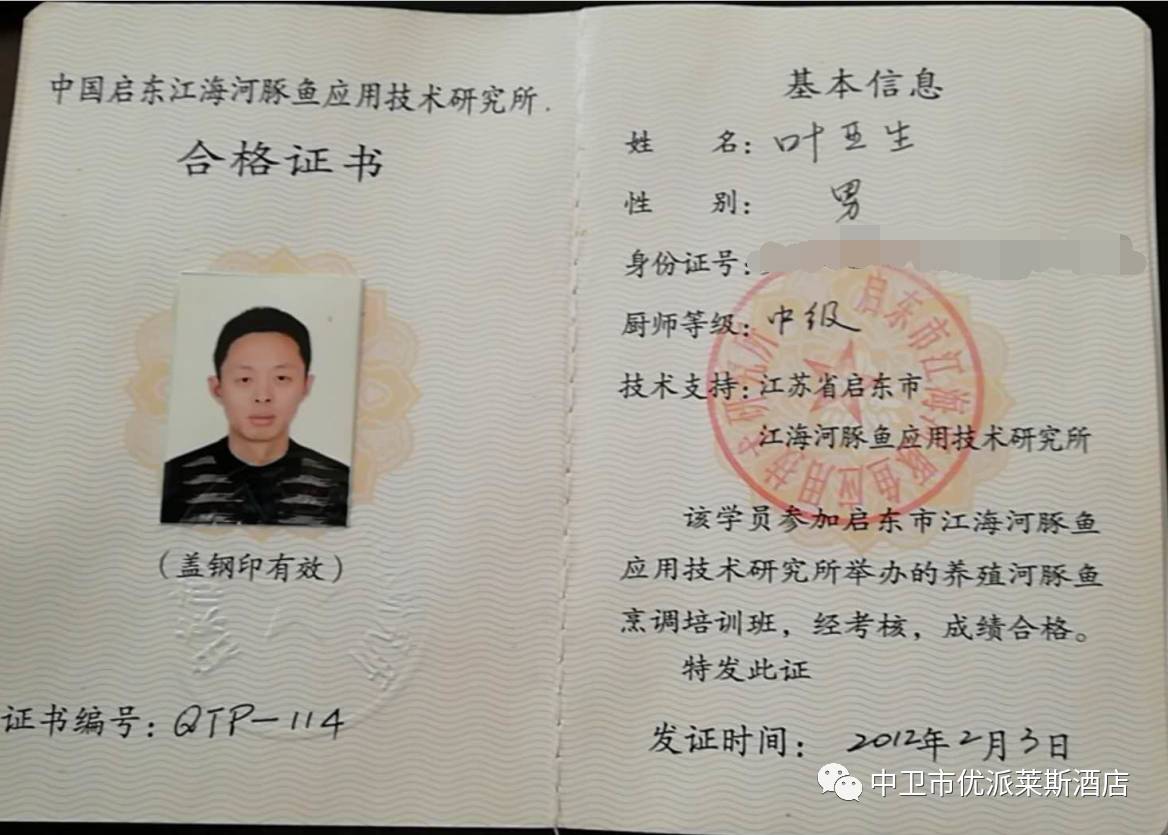 中国启东江海河豚鱼应用技术研究所.
合格证书
(盖钢印有效)
证书编号：QTP-114
基本信息
姓 名：叶亚生
性 别：男
身份证号：
厨师等级：中级
技术支持：江苏省启东市
江海河豚鱼应用技术研究所
启东市江海河豚鱼应用技术研究所
该学员参加启东市江海河豚鱼
应用技术研究所举办的养殖河豚鱼
烹调培训班，经考核，成绩合格。
特发此证
发证时间：2012年2月3日
中卫市优派莱斯酒店